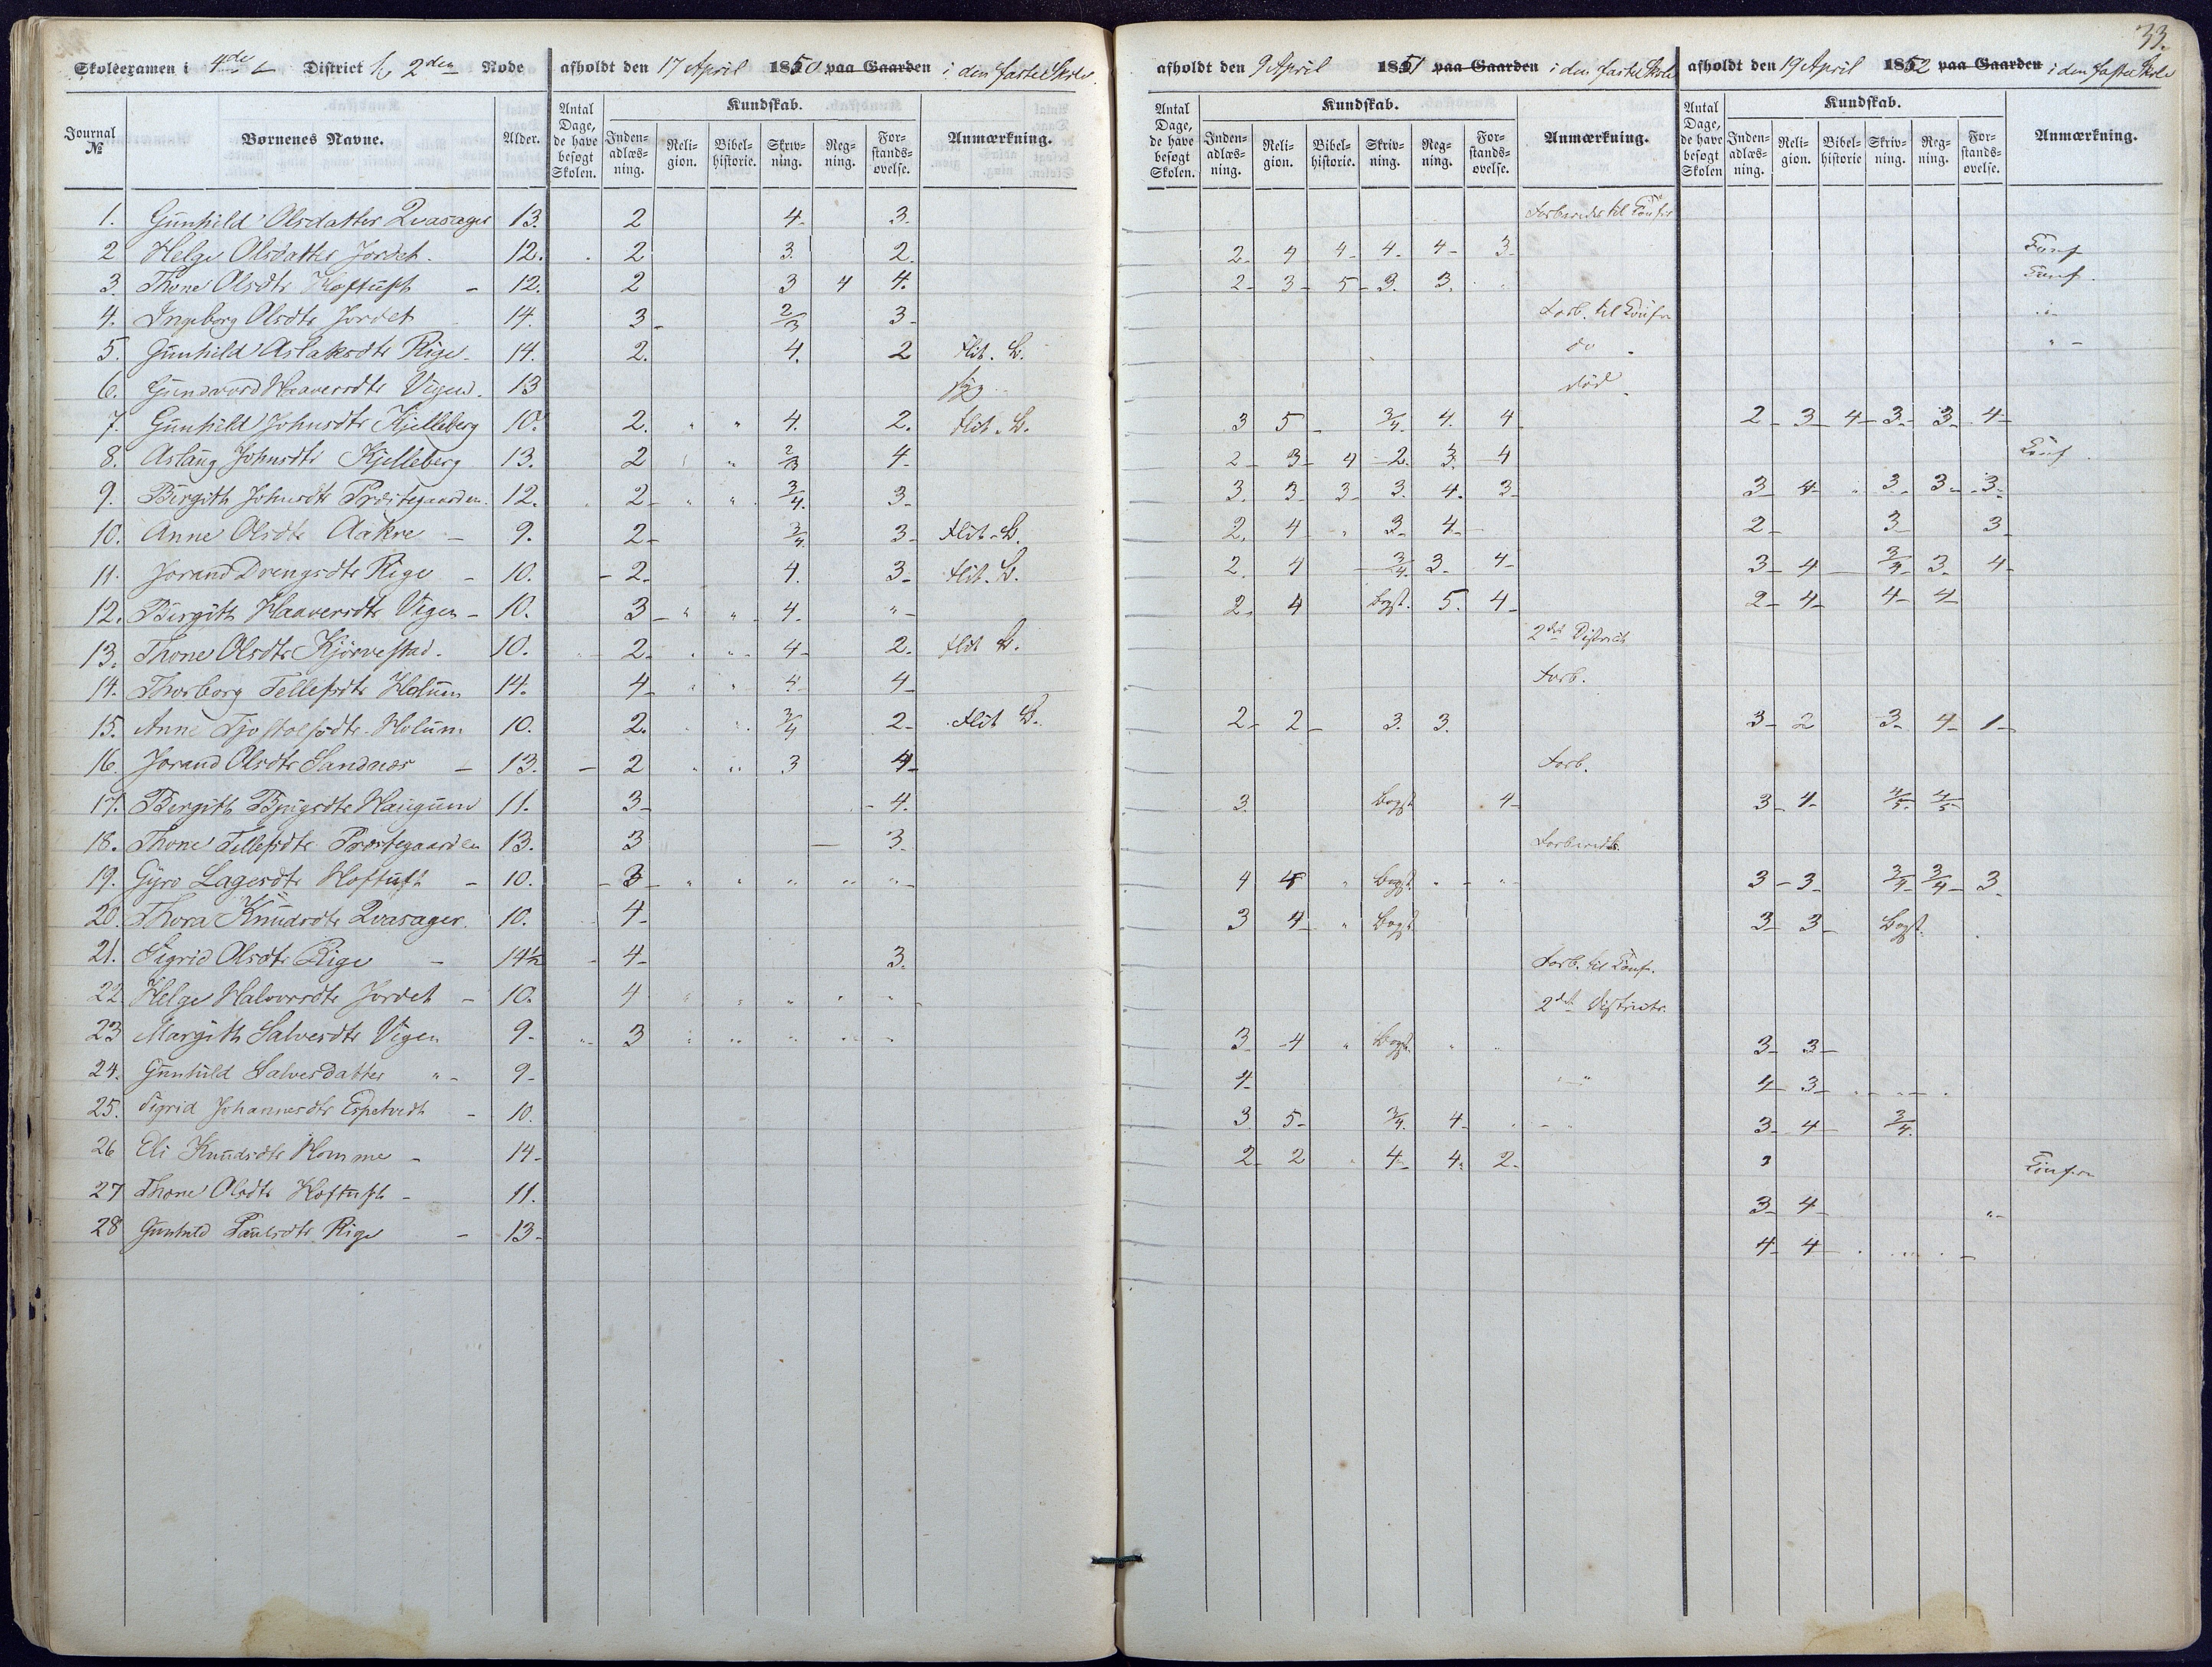 33.
Skoleexamen i 4de District 2den Rode afholdt den 17 April 1850 paa Gaarden i den faste Skole
afholdt den 9 April 1851 paa Gaarden i den faste Skole afholdt den 19 April 1852 paa Gaarden i den faste Skole
Journal № Børnenes Navne. Alder. Antal Dage, de have besøgt Skolen. Kundskab. Inden-adlæs-ning. Reli-gion. Bibel-historie. Skriv-ning. Reg-ning. For-stands-øvelse. Anmærkning.
Antal Dage, de have besøgt Skolen. Kundskab. Inden-adlæs-ning. Reli-gion. Bibel-historie. Skriv-ning. Reg-ning. For-stands-øvelse. Anmærkning.
Antal Dage, de have besøgt Skolen Kundskab. Inden-adlæs-ning. Reli-gion. Bibel-historie Skriv-ning. Reg-ning. For-stands-øvelse. Anmærkning.
1. Gunhild Olsdatter Qvasager 13. 2 4- 3. Forberedes til Conf
2 Helge Olsdatter Jordet. 12. 2 3. 2. 2- 4 4- 4- 4- 3- Conf
3. Thone Olsdtr Hoftuft - 12. 2 3 4 4. 2- 3- 5- 3. 3. Conf.
4. Ingeborg Olsdtr Jordet 14. 3- 2/3 3- Forb. til Conf "-
5. Gunhild Aslaksdtr Rige- 14. 2. 4. 2 Flit. B. do "-
6. Gundvord Haaversdtr Vigen. 13 syg død
7. Gunhild Johnsdtr Kjelleberg 10. 2. " " 4. 2. Flit. B. 3 5- 3/4. 4. 4 2- 3- 4- 3- 3- 4-
8. Aslaug Johnsdtr Kjelleberg 13. 2 " 2/3 4- 2- 3- 4 2. 3. 4 Conf.
9. Birgith Johnsdtr Præstegaarden. 12. 2- " " 3/4. 3- 3. 3- 3- 3. 4. 3- 3- 4- " 3- 3- 3-
10. Anne Olsdtr Aakre - 9. 2- 3/4. 3- Flit. B. 2. 4- " 3- 4- 2- 3- 3-
11. Jorand Drengsdtr Rige - 10. -2- 4. 3- Flit. B. 2. 4 3/4. 3. 4- 3- 4- 3/4- 3- 4-
12. Birgith Haaversdtr Vigen - 10. 3- " " 4- "- 2. 4 Bogst. 5. 4- 2- 4- 4- 4-
13. Thone Olsdtr Kjørvestad. 10. 2- " " 4- 2. Flit B. 2det District
14. Thorborg Tellefsdtr Holum 14. 4- " " 4- 4- Forb.
15. Anne Tjostolfsdtr Holum 10. 2. 3/4 2- Flit B. 2- 2- 3. 3. 3- 2 3- 4- 1-
16. Jorand Olsdtr Sandnæs - 13. - 2 " " 3 4- Forb.
17. Bergith Bjugsdtr Haugum 11. 3- - 4. 3. Bogst 4- 3- 4- 4/5- 4/5-
18. Thone Tellefsdtr Præstegaarden 13. 3 - 3. Forberedes.
19. Gyro Lagesdtr Hoftuft - 10. -3- " " " " "- 4 4 " Bogst. " - "- 3- 3- 3/4- 3/4- 3.
20. Thora Knudsdtr Qvasager. 10. 4- 3 4- " Bogst 3- 3- Bogst.
21. Sigrid Olsdtr Rige - 14½ - 4- 3. Forb. til Conf.
22 Helge Halvorsdtr Jordet - 10. 4 " " " " "- 2det District.
23 Margith Salvesdtr Vigen 9- " 3 " " " " " 3- -4 " Bogst. " " 3- 3-
24. Gunhild Salvesdatter "- 9- 4- "-" 4- 3-
25. Sigrid Johannesdtr Espetvedt - 10. 3. 5- 3/4. 4- 3- 4- 3/4.
26 Eli Knudsdtr Homme - 14- 2- 2 4- 4. 2- 3 Conf
27 Thone Olsdtr Hoftuft - 11. 3- 4- "-
28 Gunhild Paulsdtr Rige - 13- 4- 4-